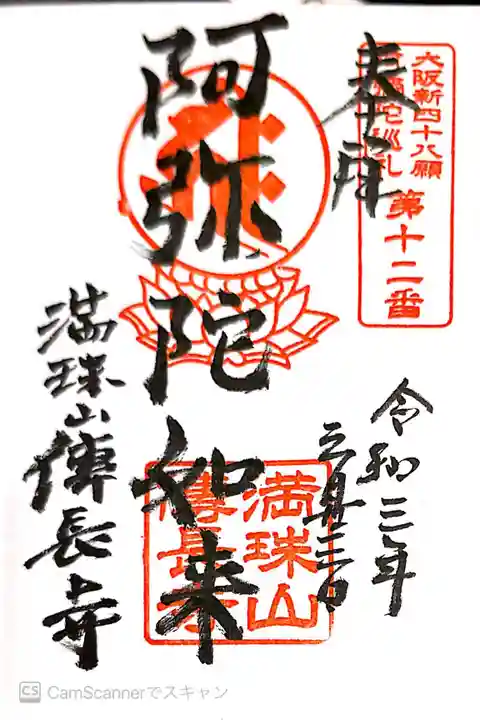 大阪新四十八願
阿弥陀巡礼
第十二番
奉拝
令和三年
三月三日
阿弥陀如来
満珠山
傳長寺
満珠山傳長寺
CS CamScannerでスキャン